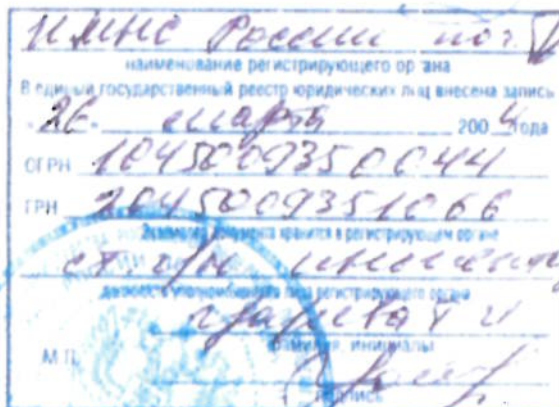 ИМНС России по г.
наименование регистрирующего органа
В единый государственный реестр юридических лиц внесена запись
"26" марта 2004 года
ОГРН 1045009350044
ГРН 2045009351066
Экземпляр документа хранится в регистрирующем органе
ст. г/н инспектор
должность уполномоченного лица регистрирующего органа
фамилия, инициалы
М.П.
подпись